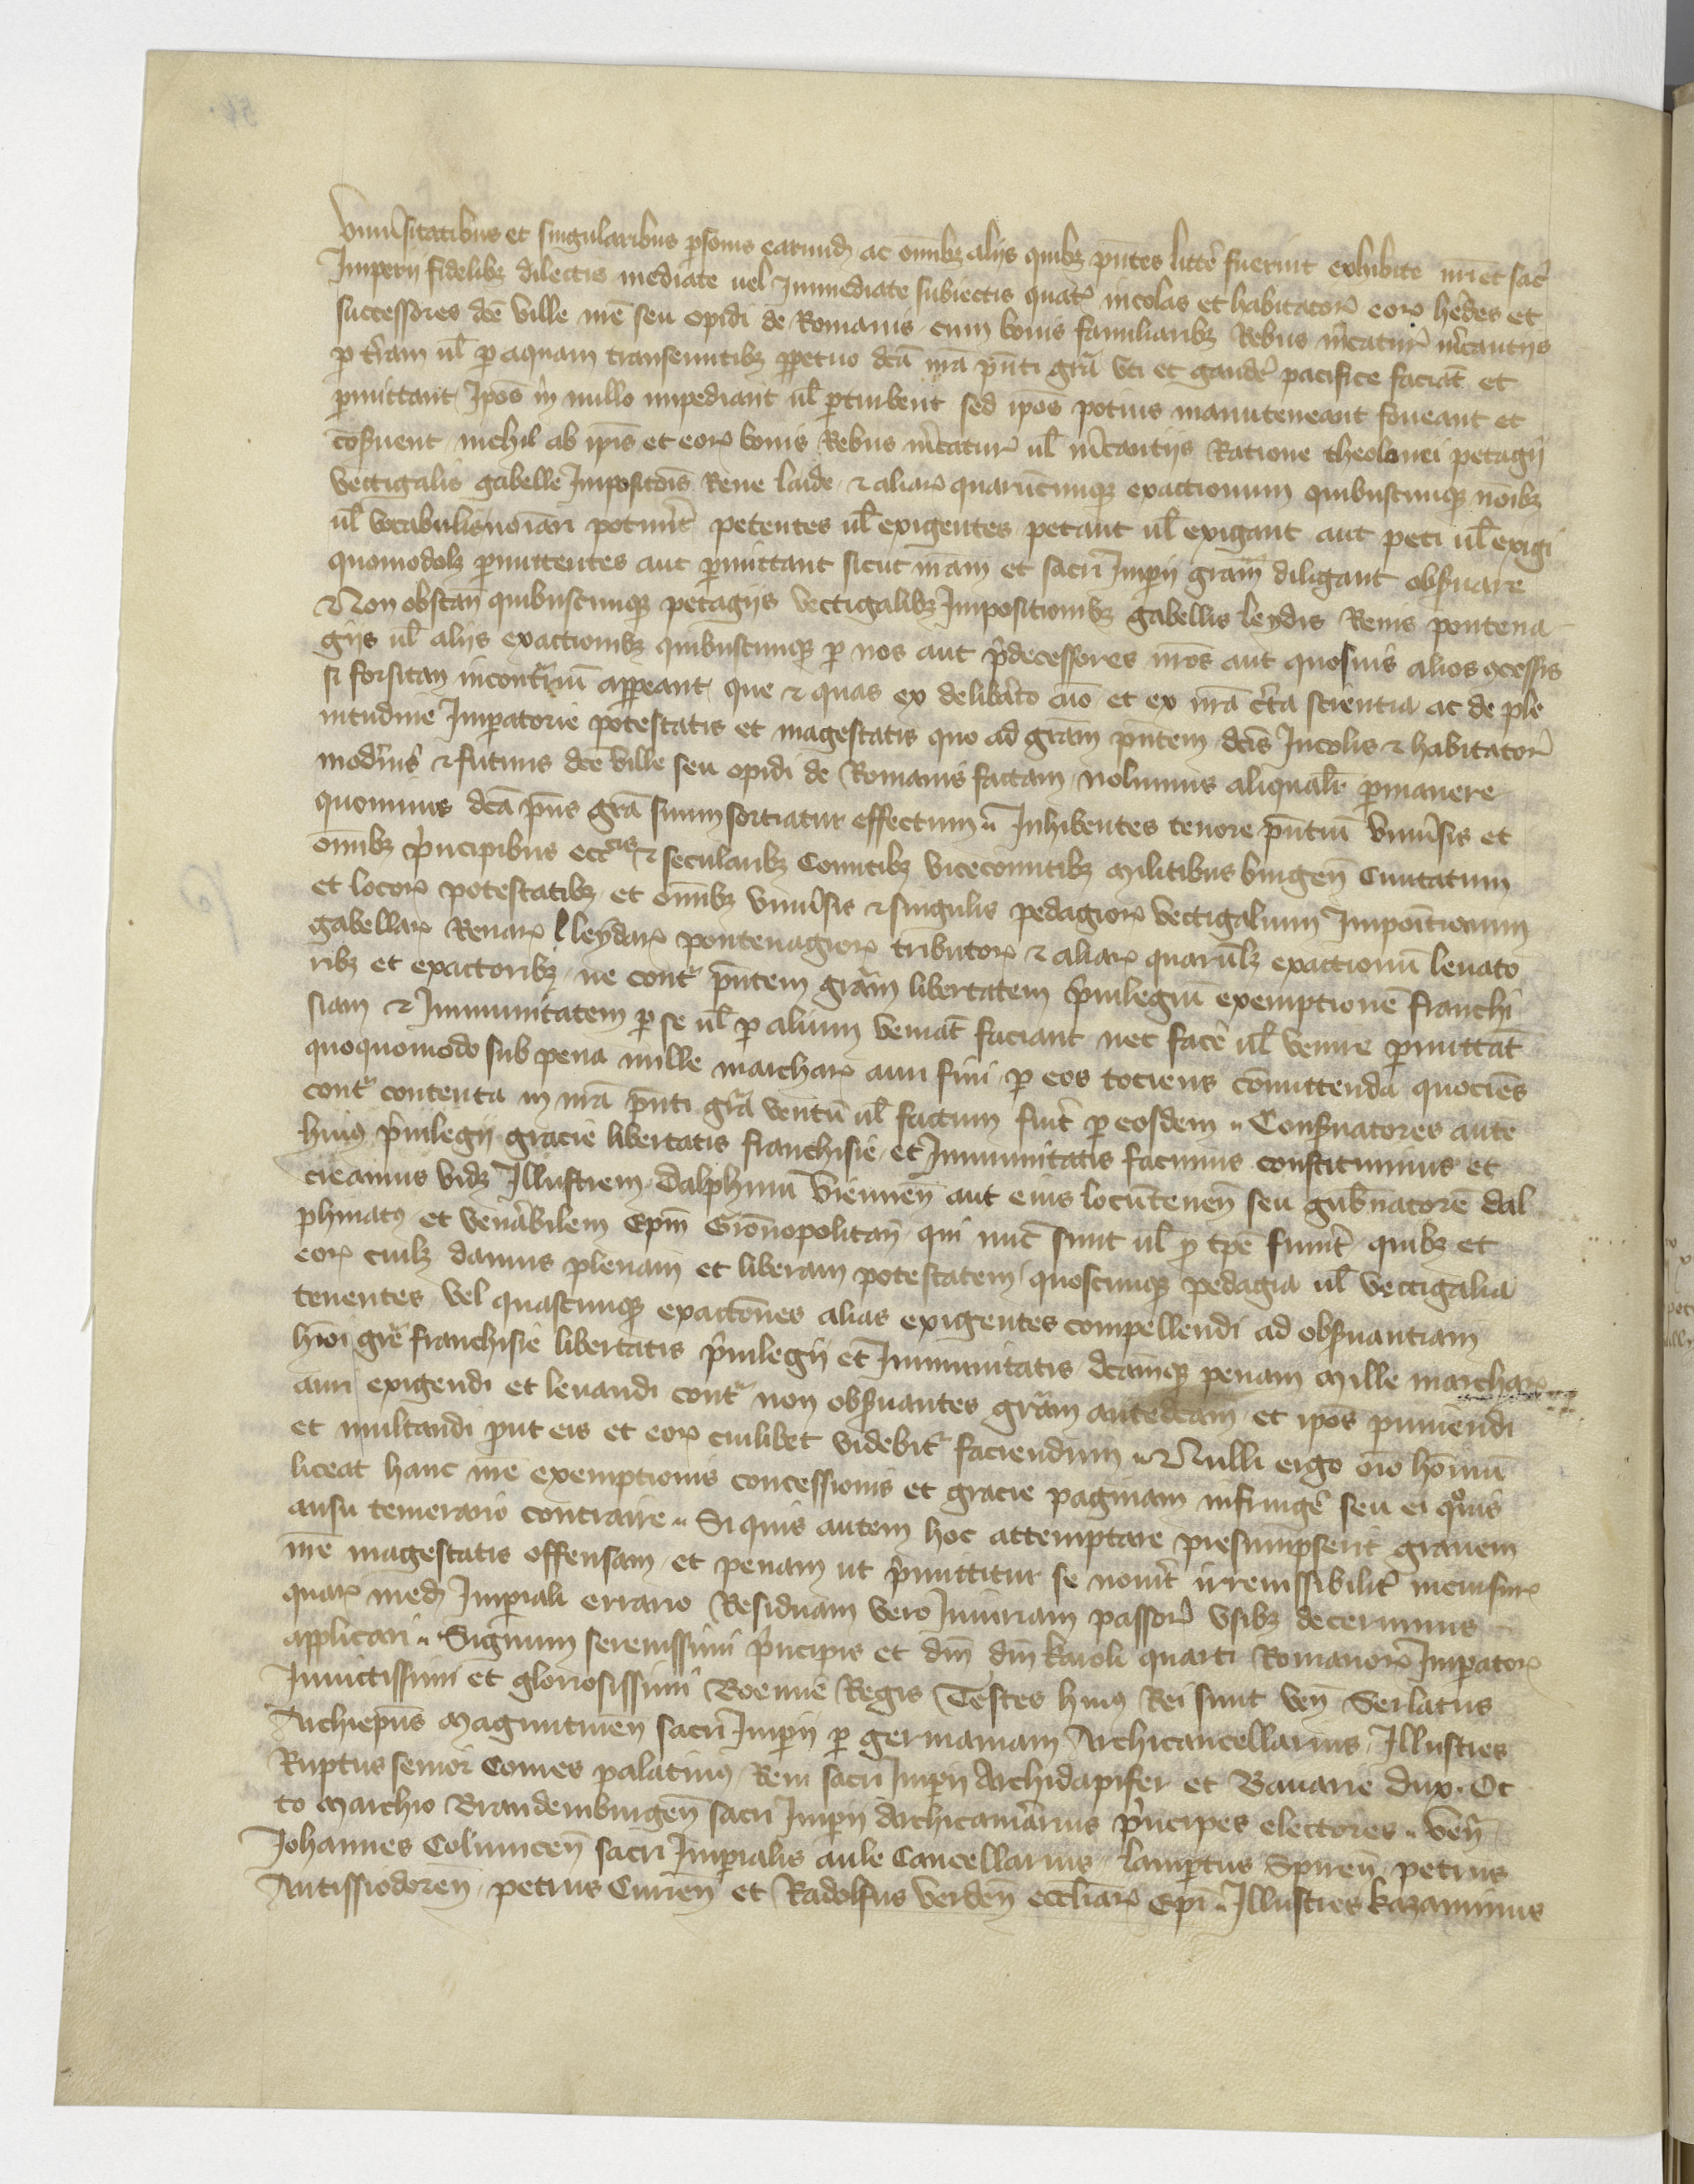 Uniũsitatibus et singularibus ꝑsonis earund̃ ac om̃ibꝫ alijs quibꝫ pñtes litte᷑ fuerint exhibite nr̃i et sac̃
Imperij fidelibꝫ dilectis mediate uel Immediate subiectis quat᷑ incolas et habitatorꝭ eorꝭ he᷑des et
successores dc̃e ville nr̃e seu opidi de Romanis cum bonis familiaribꝫ Rebus m᷑caturꝭ m᷑cantijs
ꝑ t᷑ram ul̃ ꝑ aquam transeuntibꝫ ꝑpetuo dc̃a nr̃a pñti gr̃a vti et gaude᷑ pacifice faciãt et
ꝑmittant Ip̃os in nullo impediant ul̃ ꝑturbent sed ip̃os potius manuteneant foueant et
cõs᷑uent nichil ab ip̃is et eorꝭ bonis Rebus m᷑caturꝭ ul̃ m᷑cantijs Ratione theolonei petagij
vectigalis gabelle Imposit̃ois Reue laide ⁊ aliarꝭ quarũcunqꝫ exactionum quibuscunqꝫ nõibꝫ
ul̃ vocabulis noĩari potuer̃t petentes ul̃ exigentes petant ul̃ exigant aut peti ul̃ exigi
quomodolꝫ ꝑmittentes aut ꝑmittant sicut nr̃am et sacri Imꝑij gr̃am diligant obs᷑uare
Non obstañ quibuscunqꝫ petagijs vectigalibꝫ Impositionibꝫ gabellis leydis Reuis pontena
gijs ul̃ alijs exactionibꝫ quibuscunqꝫ ꝑ nos aut p᷑decessores nr̃os aut quosuis alios ɔcessis
si forsitan incont᷑riũ apꝑeant que ⁊ quas ex delib᷑ato aĩo et ex nr̃a c᷑ta scientia ac de ple
nitudine Imꝑatorie potestatis et magestatis quo ad gr̃am pñtem dc̃is Incolis ⁊ habitatorꝭ
mod᷑nis ⁊ futuris dc̃e ville seu opidi de Romanis factam nolumus aliqualr̃ ꝑmanere
quominus dc̃a pñs gr̃a suum sortiatur effectum Inhibentes tenore pñtiũ Uniũsis et
om̃ibꝫ p᷑ncipibus ecc̃cis ⁊ secularibꝫ Comitibꝫ Vicecomitibꝫ Militibus burgeñ Ciuitatum
et locorꝭ potestatibꝫ et om̃ibꝫ vniũsis ⁊ singulis pedagiorꝭ vectigalium Impoĩtionum
gabellarꝭ Reuarꝭ leydarꝭ pontenagiorꝭ tributorꝭ ⁊ aliarꝭ quarũlꝫ exactionũ leuato
ribꝫ et exactoribꝫ ne cont᷑ pñtem gr̃am libertatem p᷑uilegiũ exemptionẽ franchi
siam ⁊ Immunitatem ꝑ se ul̃ ꝑ alium veniãt faciant nec face᷑ ul̃ venire ꝑmittãt
quoquomodo sub pena mille marcharꝭ auri fini ꝑ eos tociens cõmittenda quociẽs
cont᷑ contenta in nr̃a pñti gr̃a ventũ ul̃ factum fuer̃t ꝑ eosdem Cons᷑uatores autẽ
huiꝰ p᷑uilegij gracie libertatis franchisie et Immunitatis facimus constituimus et
creamus vidꝫ Illustrem Dalphinũ Vienneñ aut eius locũteneñ seu gub᷑natorẽ dal
phinatꝰ et ven᷑abilem Ep̃m Gr̃onopolitañ qui nũc sunt ul̃ ꝓ tp̃e fuer̃t quibꝫ et
eorꝭ cuilꝫ damus plenam et liberam potestatem quoscunqꝫ pedagia ul̃ vectigalia
tenentes vel quascunqꝫ exactõnes alias exigentes compellendi ad obs᷑uantiam
hm̃oi gr̃e franchisie libertatis p᷑uilegij et Immunitatis dc̃amqꝫ penam Mille marcharꝭ
auri exigendi et leuandi cont᷑ non obs᷑uantes gr̃am antedc̃am et ip̃os puniendi
et multandi ꝓut eis et eorꝭ cuilibet videbit᷑ faciendum Nulli ergo oĩo hom̃nũ
liceat hanc nr̃e exemptionis concessionis et gracie paginam infringe᷑ seu ei quouis
ausu temerario contraire Si quis autem hoc attemptare presumpserit grauem
nr̃e magestatis offensam et penam ut p᷑mittitur se nouer̃t irremissibilit᷑ incursurꝭ
quarꝭ med̃ Imꝑiali errario Residuam vero Iniuriam passorꝭ vsibꝫ decernimus
applicari Signum serenissimi p᷑ncipis et dñi dñi karoli quarti Romanorꝭ Imꝑatorꝭ
Inuictissimi et gloriosissimi Boemie Regis Testes huiꝰ Rei sunt veñ Gerlatus
Archiep̃us Maguntineñ sacri Imꝑij ꝑ germaniam Archicancellarius Illustres
Ruptus senior Comes palatinꝰ Reni sacri Imꝑij Archidapifer et Bauarie dux Ot
to Marchio Brandemburgeñ sacri Imꝑij Archicam᷑arius p᷑ncipes electores Veñ
Johannes Olumuceñ sacri Imꝑialis aule Cancellarius lamꝑtus Spireñ petrus
Antissiodoreñ petrus Cureñ et Radolfus verdeñ eccl̃iarꝭ Ep̃i Illustres kazamirus